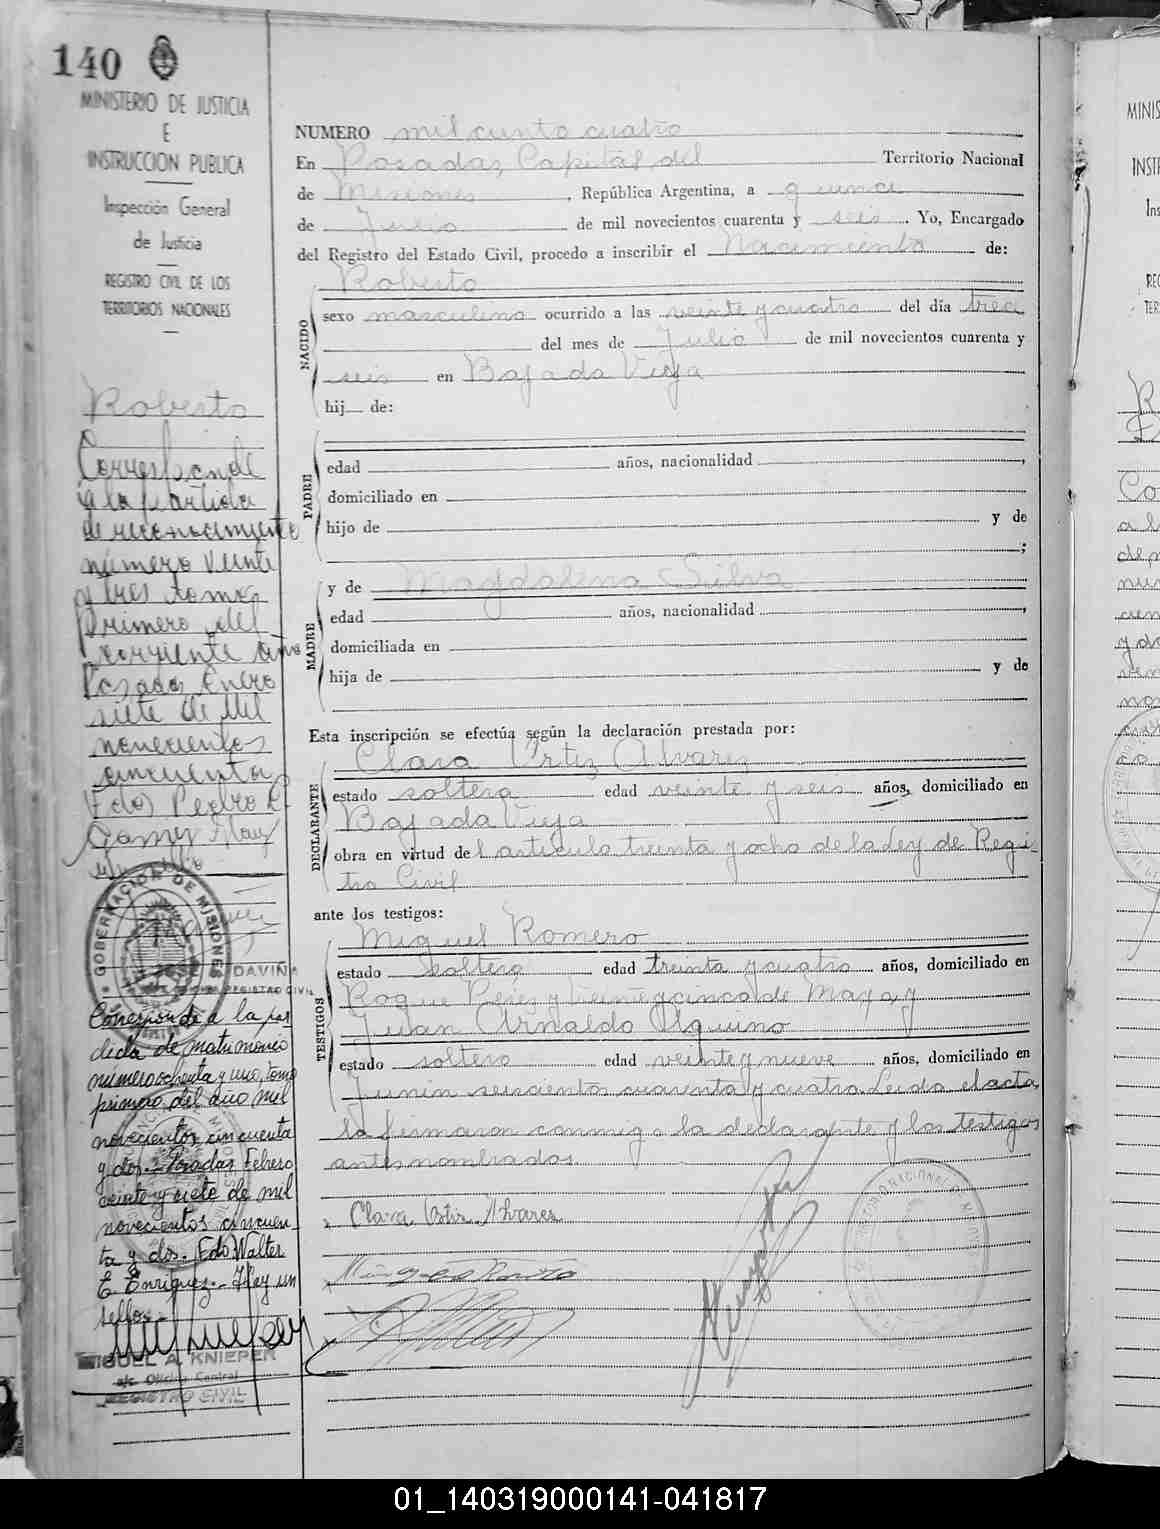 140
MINISTERIO DE JUSTICIA
E
INSTRUCCION PUBLICA
Inspección General
de Justicia
REGISTRO CIVIL DE LOS
TERRITORIOS NACIONALES
Roberto
Corresponde
a la partida
de reconocimiento
número veinte
y tres tomo
primero del
corriente año
Posadas Enero
siete de mil
novecientos
cincuenta
Fdo) Pedro
Gamez Hay
un sello
GOBERNACION DE MISIONES
DAVIÑA
REGISTRO CIVIL
Corresponde a la par
tida de matrimonio
número ochenta y uno, tomo
primero del año mil
novecientos cincuenta
y dos.- Posadas Febrero
veinte y siete de mil
novecientos cincuen
ta y dos. Fdo) Walter
E. Enriquez.- Hay un
sello.-
MIGUEL A. KNIEPER
a/c. Oficina Central
REGISTRO CIVIL
NUMERO mil ciento cuatro
En Posadas, Capital del Territorio Nacional
de Misiones, República Argentina, a quince
de Julio de mil novecientos cuarenta y seis. Yo, Encargado
del Registro del Estado Civil, procedo a inscribir el Nacimiento de:
NACIDO
Roberto
sexo masculino ocurrido a las veinte y cuatro del día trece
del mes de Julio de mil novecientos cuarenta y
seis en Bajada Vieja
hij de:
PADRE
edad años, nacionalidad ,
domiciliado en
hijo de y de
;
MADRE
y de Magdalena Silva
edad años, nacionalidad ,
domiciliada en
hija de y de
Esta inscripción se efectúa según la declaración prestada por:
DECLARANTE
Clara Ortiz Alvarez
estado soltera edad veinte y seis años, domiciliado en
Bajada Vieja
obra en virtud del artículo treinta y ocho de la Ley de Regis-
tro Civil
ante los testigos:
TESTIGOS
Miguel Romero
estado soltero edad treinta y cuatro años, domiciliado en
Roque Perez y Veinte y cinco de Mayo y
Juan Arnaldo Aquino
estado soltero edad veinte y nueve años, domiciliado en
Junin seiscientos cuarenta y cuatro. Leida el acta,
la firmaron conmigo la declarante y los testigos
antes nombrados.
Clara Ortiz Alvarez
01_140319000141-041817